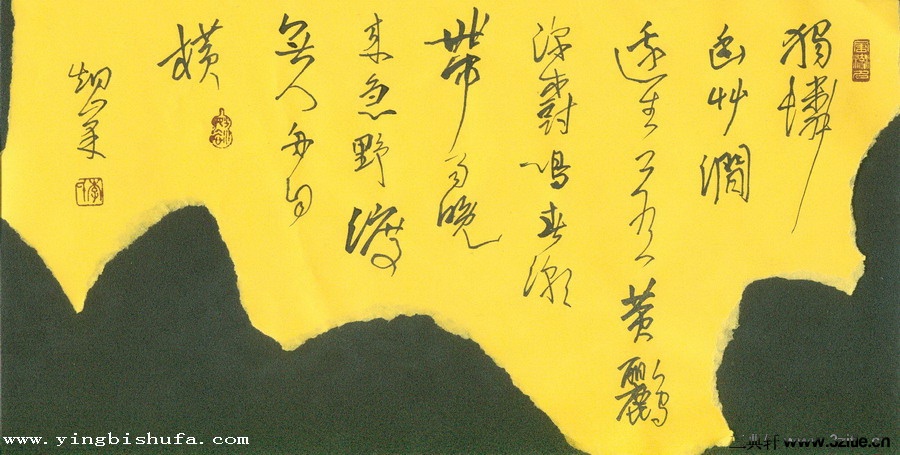 獨憐
幽艸澗
邊生上有黄鸝
深樹鳴春潮
帶雨晚
來急野渡
無人舟自
橫
www.yingbishufa.com
www.3zitie.cn